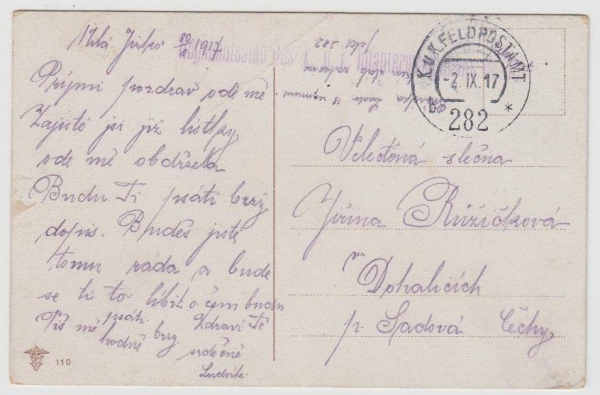 Milá Jiřko 30/8 1917
Přijmi pozdrav ode mě
Zajisté jsi již lístky
ode mě obdržela
Budu Ti psáti brzy
dopis. Budeš jistě
tomu ráda a bude
se ti to líbit o čem budu
psáti. Zdraví Tě
Piš mě hodně brzy
srdečně
Ludvík
110
K.u.K. FELDPOSTAMT
-2.IX.17
282
Velectěná slečna
Jiřina Růžičková
v Dohaličích
p. Sadová Čechy